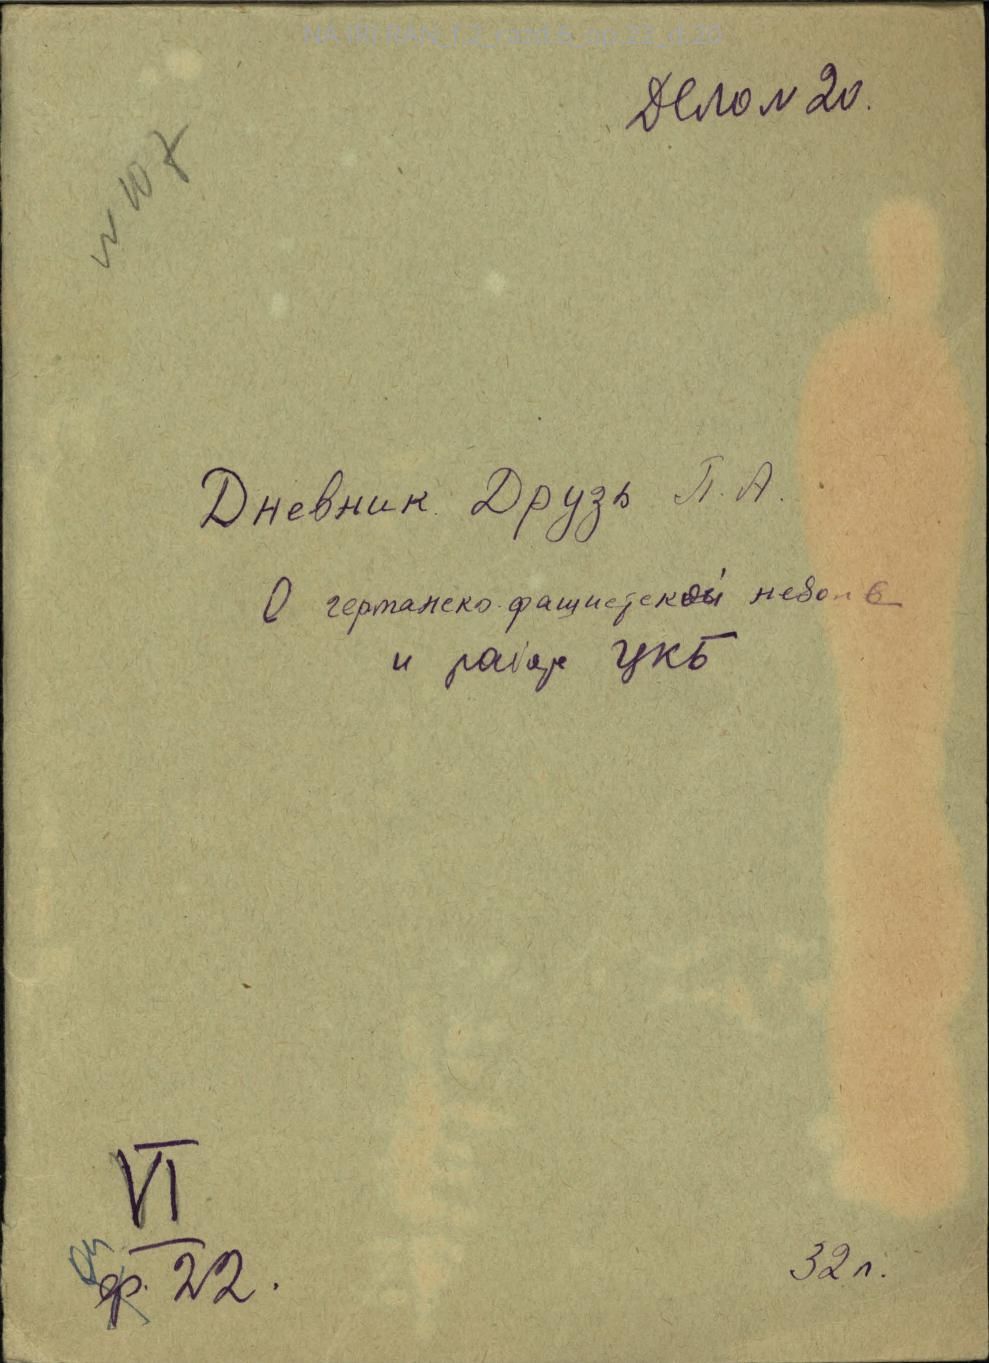 NA IRI RAN_f.2_razd.6_op.22_d.20
Дело N 20.
N 107
Дневник Друзь П.А.
О германско-фашистской неволе
и ЦКБ
VI
ф. 22.
оп
32 л.